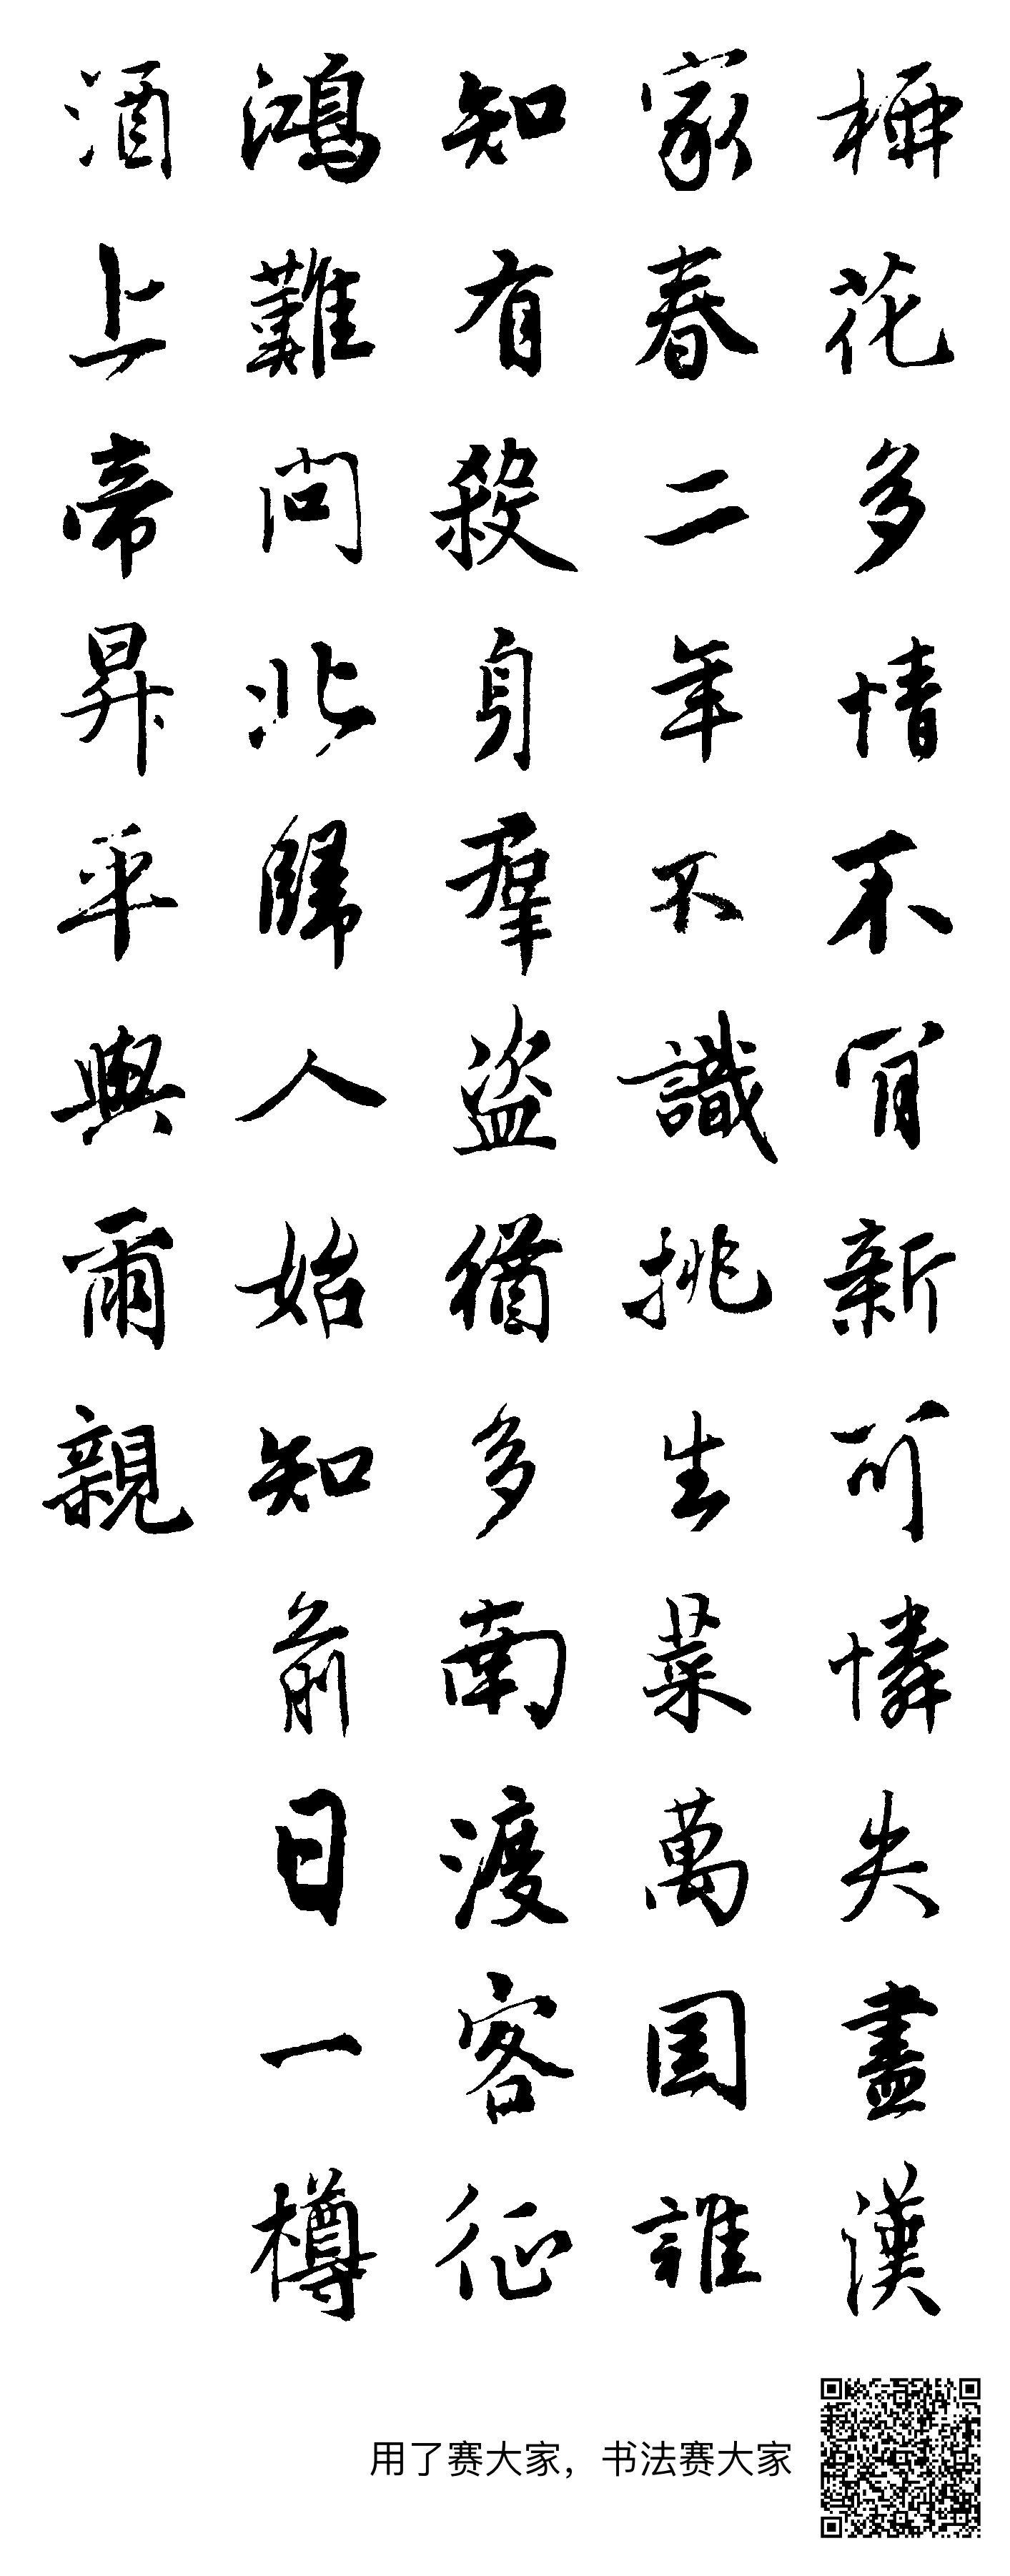 柳花多情不肎新可憐失盡漢
家春二年不識挑生菜萬国誰
知有殺身群盜猶多南渡客征
鴻難問北歸人始知前日一樽
酒上帝昇平與爾親
用了赛大家，书法赛大家